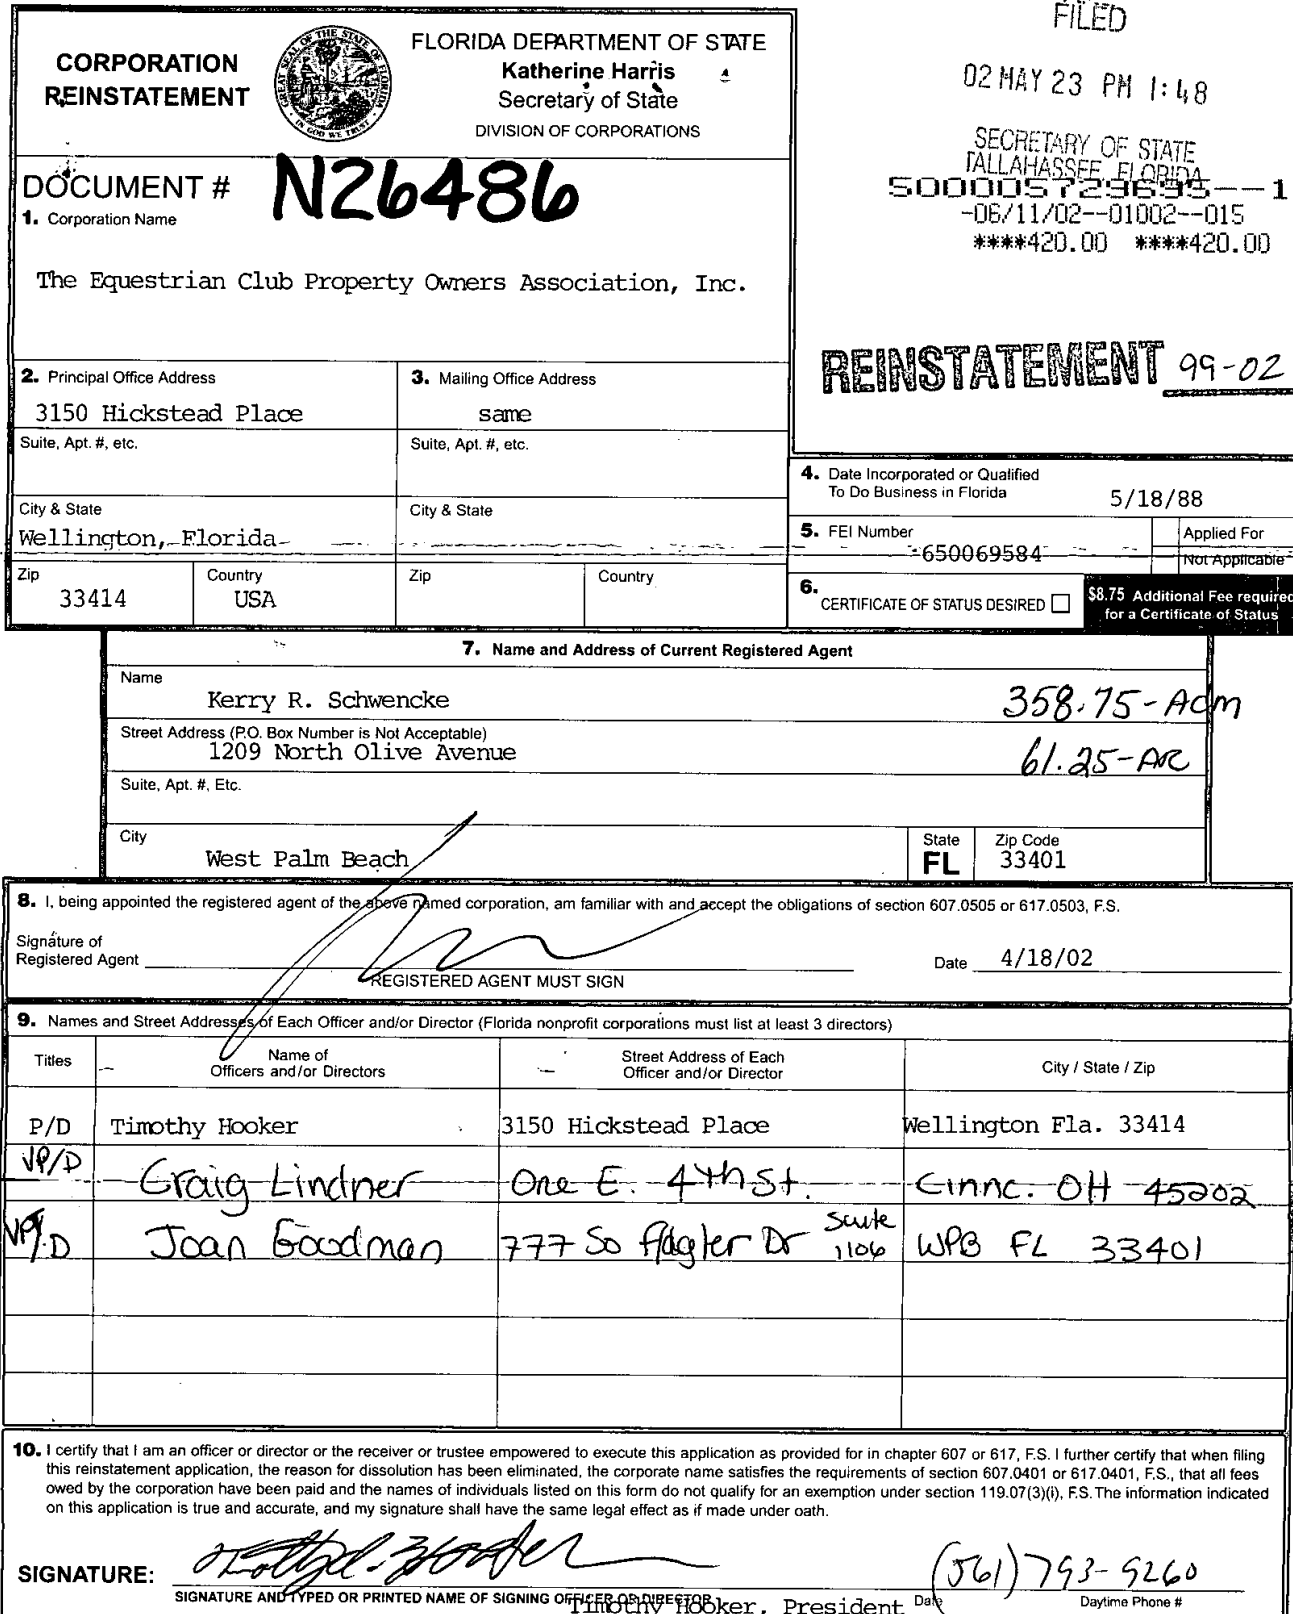 FILED
02 MAY 23 PM 1:48
SECRETARY OF STATE
TALLAHASSEE, FLORIDA
500005729695--1
-06/11/02--01002--015
****420.00 ****420.00
CORPORATION
REINSTATEMENT
GREAT SEAL OF THE STATE OF FLORIDA
IN GOD WE TRUST
FLORIDA DEPARTMENT OF STATE
Katherine Harris
Secretary of State
DIVISION OF CORPORATIONS
DOCUMENT # N26486
1. Corporation Name
The Equestrian Club Property Owners Association, Inc.
REINSTATEMENT 99-02
2. Principal Office Address
3150 Hickstead Place
3. Mailing Office Address
same
Suite, Apt. #, etc.
Suite, Apt. #, etc.
City & State
Wellington, Florida
City & State
Zip
33414
Country
USA
Zip
Country
4. Date Incorporated or Qualified
To Do Business in Florida
5/18/88
5. FEI Number
650069584
Applied For
Not Applicable
6. CERTIFICATE OF STATUS DESIRED
$8.75 Additional Fee required
for a Certificate of Status
7. Name and Address of Current Registered Agent
Name
Kerry R. Schwencke
358.75-Adm
Street Address (P.O. Box Number is Not Acceptable)
1209 North Olive Avenue
61.25-AR
Suite, Apt. #, Etc.
City
West Palm Beach
State
FL
Zip Code
33401
8. I, being appointed the registered agent of the above named corporation, am familiar with and accept the obligations of section 607.0505 or 617.0503, F.S.
Signature of
Registered Agent
Date 4/18/02
REGISTERED AGENT MUST SIGN
9. Names and Street Addresses of Each Officer and/or Director (Florida nonprofit corporations must list at least 3 directors)
Titles
Name of
Officers and/or Directors
Street Address of Each
Officer and/or Director
City / State / Zip
P/D Timothy Hooker 3150 Hickstead Place Wellington Fla. 33414
VP/D Craig Lindner One E. 4th St. Cinnc. OH 45202
VP/D Joan Goodman 777 So Flagler Dr Suite 1106 WPB FL 33401
10. I certify that I am an officer or director or the receiver or trustee empowered to execute this application as provided for in chapter 607 or 617, F.S. I further certify that when filing
this reinstatement application, the reason for dissolution has been eliminated, the corporate name satisfies the requirements of section 607.0401 or 617.0401, F.S., that all fees
owed by the corporation have been paid and the names of individuals listed on this form do not qualify for an exemption under section 119.07(3)(i), F.S. The information indicated
on this application is true and accurate, and my signature shall have the same legal effect as if made under oath.
SIGNATURE:
(561) 793-9260
SIGNATURE AND TYPED OR PRINTED NAME OF SIGNING OFFICER OR DIRECTOR
Timothy Hooker, President
Date
Daytime Phone #